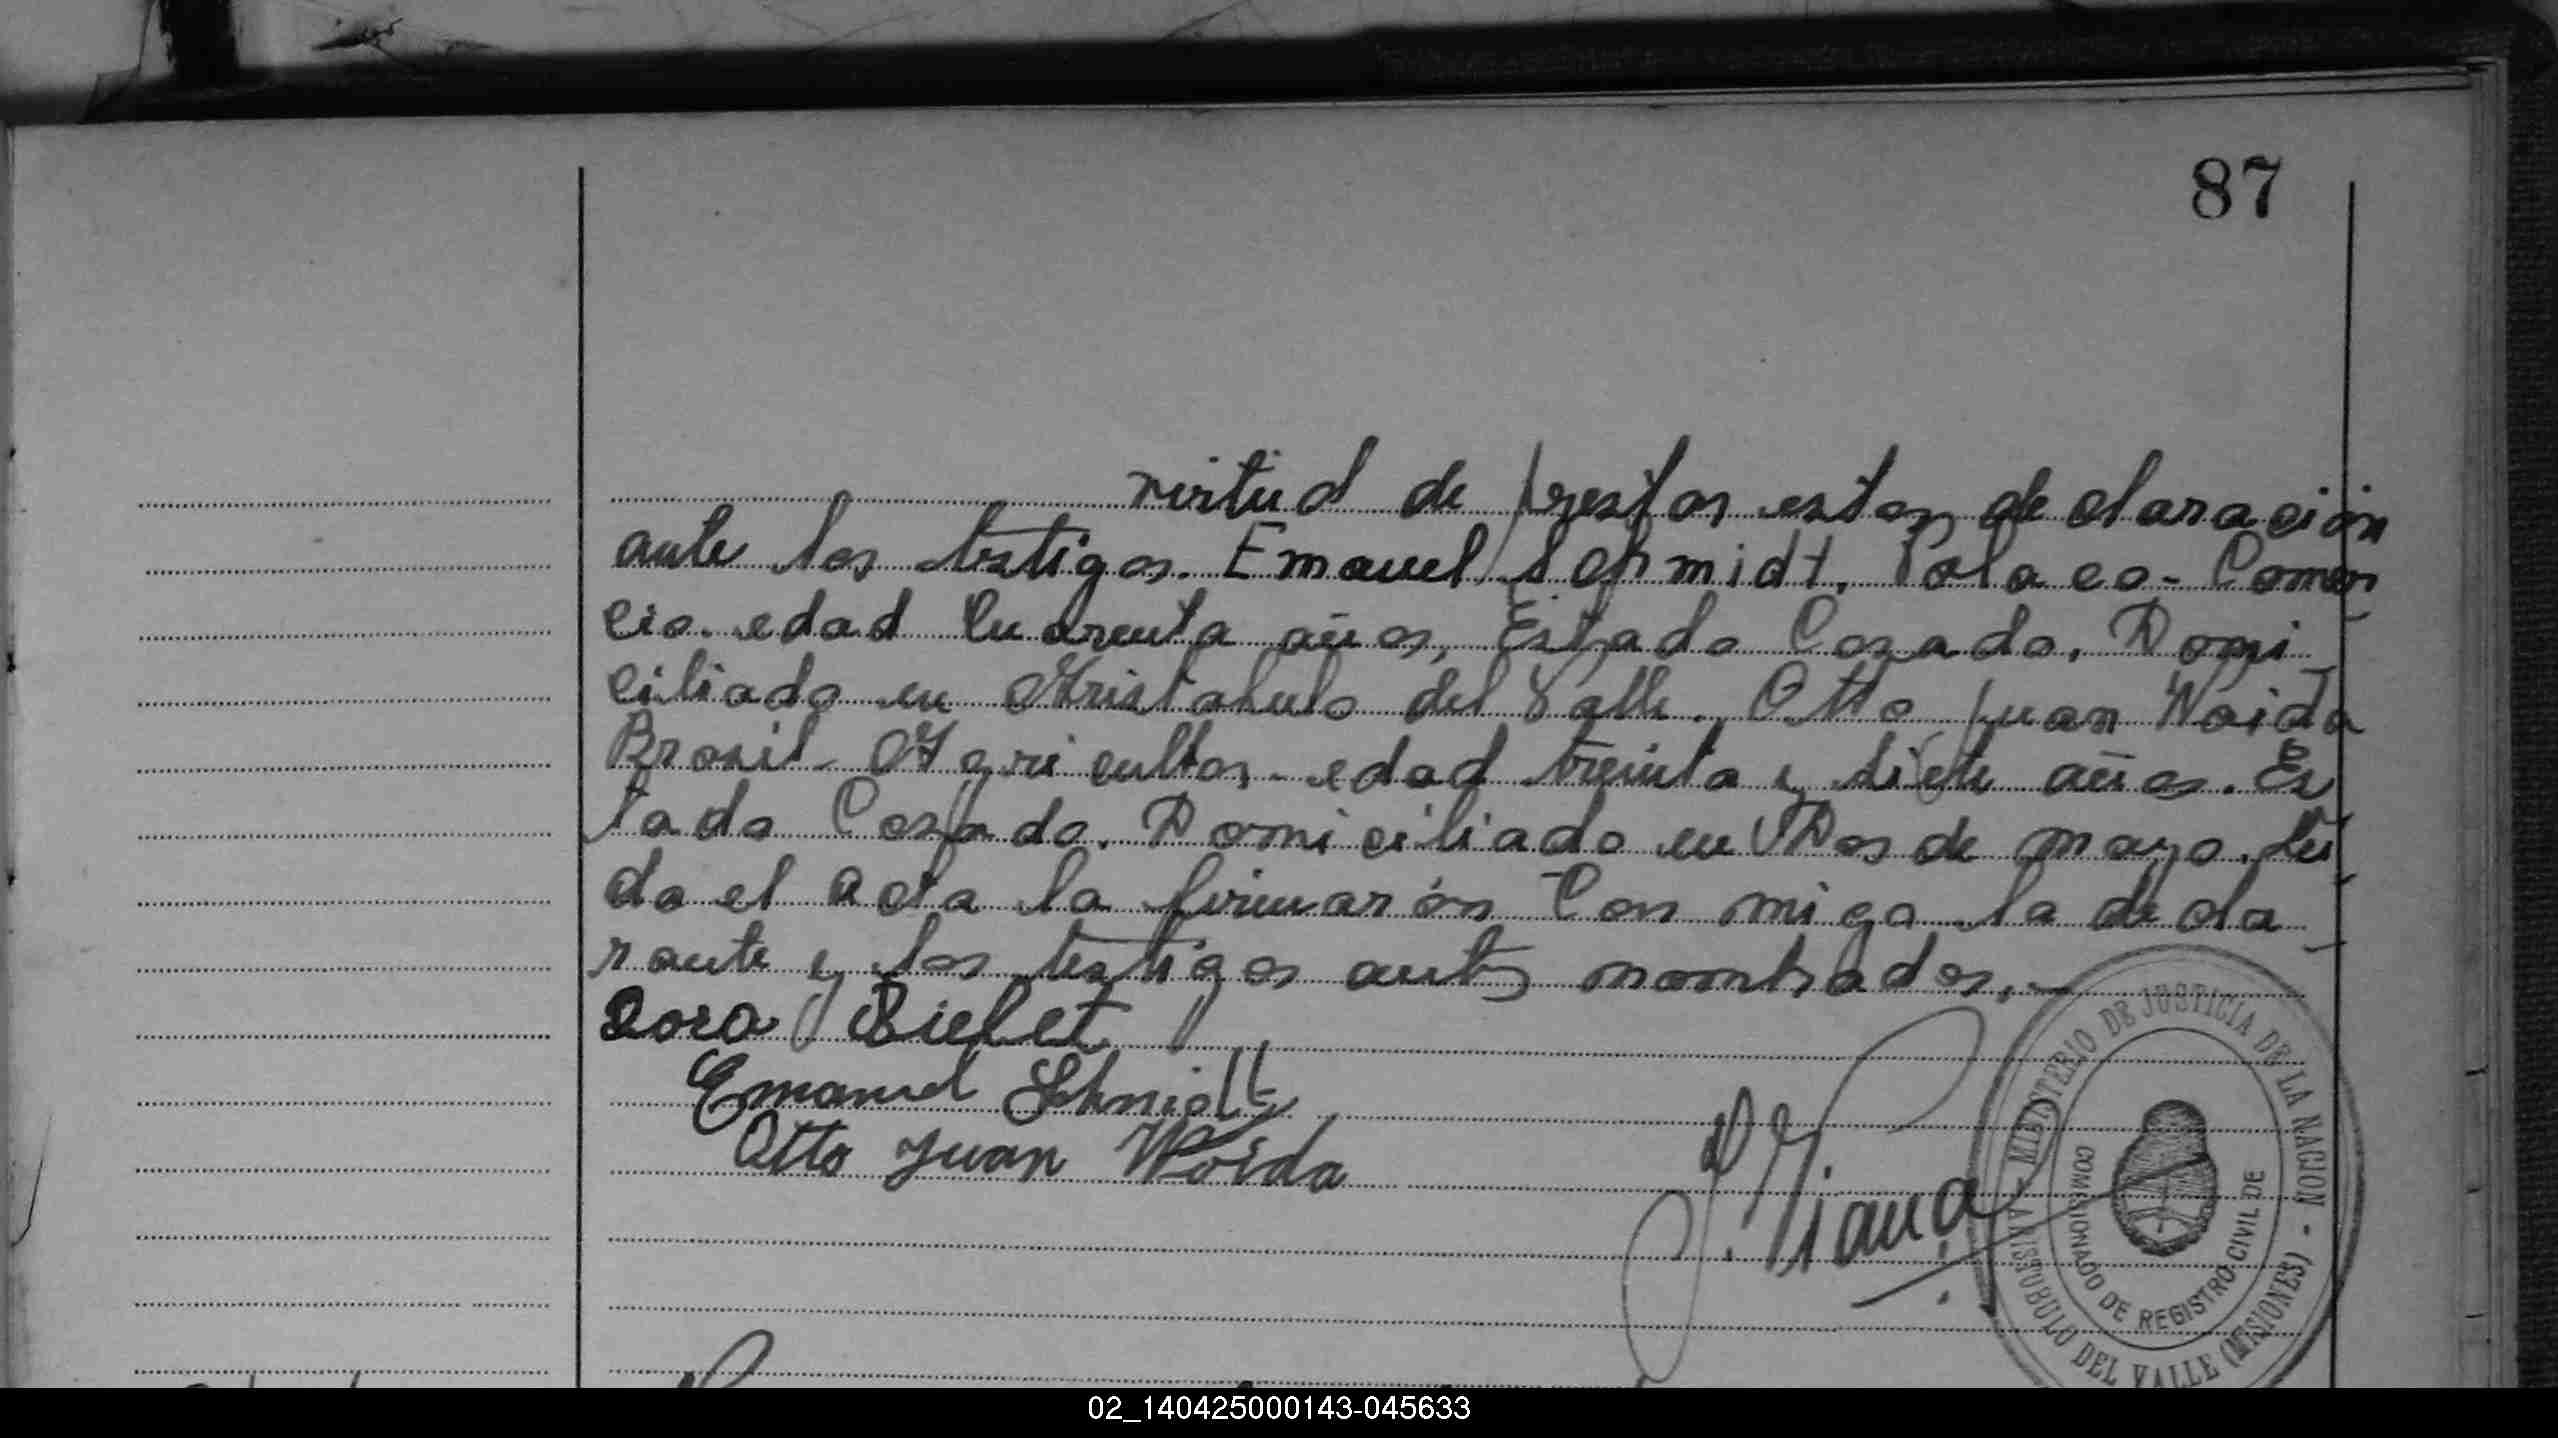 87
virtud de prestar estos declaración
ante los testigos. Emanuel Schmidt. Polaco - Comer
cio. edad Cuarenta años, Estado Casado. Domi
ciliado en Aristobulo del Valle. Otto Juan Woida
Brasil - Agricultor - edad treinta y siete años. Es
tado Casado. Domiciliado en Dos de mayo. Lei
da el acta la firmarón Con migo la decla
rante y los testigos antes nombrados.
Dora Sielet
Emanuel Schmidt
Otto Juan Woida
MINISTERIO DE JUSTICIA DE LA NACION - ARISTOBULO DEL VALLE (MISIONES)
COMISIONADO DE REGISTRO CIVIL DE
02_140425000143-045633